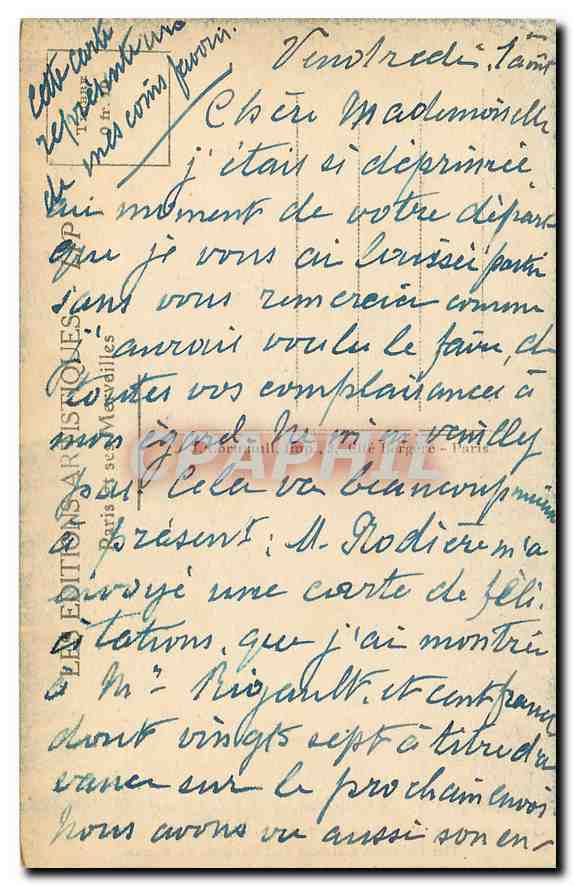 Cette carte
représente un
de mes coins favoris.
Vendredi, 1 août
Chère Mademoiselle
j'étais si déprimée
au moment de votre départ
que je vous ai laissée partir
sans vous remercier comme
j'aurais voulu le faire, de
toutes vos complaisances à
mon égard. Ne m'en veuillez
pas! Cela va beaucoup mieux
à présent; M. Rodière m'a
envoyé une carte de féli-
citations, que j'ai montrée
à Mr Rigault, et cent francs
dont vingts sept à titre d'a
vance sur le prochain envoi
Nous avons vu aussi son en-
LES EDITIONS ARTISTIQUES L.P.
Paris et ses Merveilles
TIMBRE
0 fr.
CPAPHIL
Imp., 3, Cité Bergère - Paris